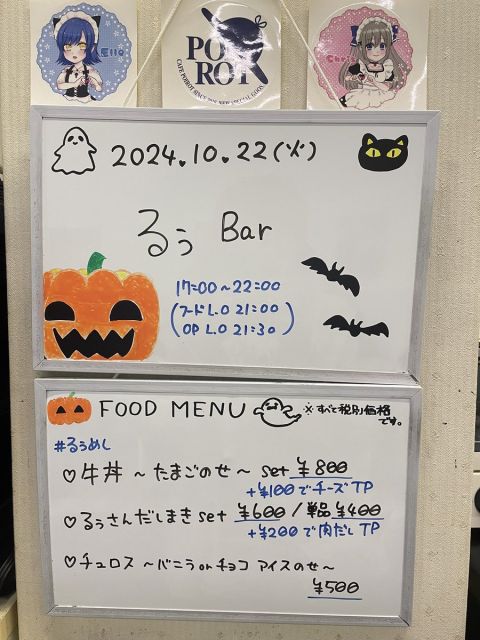 Ello
POI
ROT
CAFE POIROT SINCE 2011 NEW SPECIAL GOODS
2024.10.22(火)
るぅ Bar
17:00～22:00
(フードL.O 21:00
OP L.O 21:30)
FOOD MENU
※すべて税別価格
です。
#るぅめし
♡牛丼 ～たまごのせ～ set ¥800
+¥100でチーズTP
♡るぅさんだしまき set ¥600 / 単品 ¥400
+¥200で肉だしTP
♡チュロス ～バニラorチョコ アイスのせ～
¥500